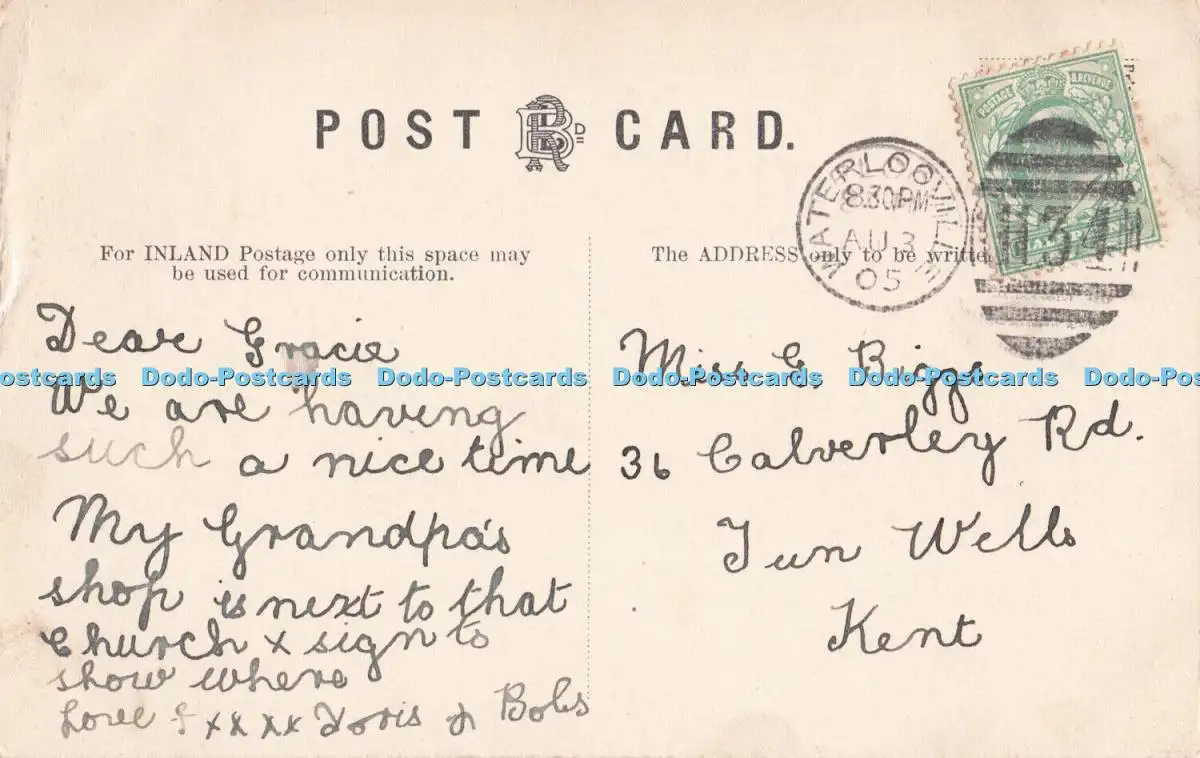 POST CARD.
For INLAND Postage only this space may
be used for communication.
The ADDRESS only to be writte
POSTAGE & REVENUE
WATERLOOVILLE
8.30PM
AU 3
05
H34
Dear Gracie
We are having
such a nice time
My Grandpa's
shop is next to that
Church x sign to
show where
Love & xxxx Doris & Bobs
Miss G Biggs
36 Calverley Rd.
Tun Wells
Kent
Dodo-Postcards Dodo-Postcards Dodo-Postcards Dodo-Postcards Dodo-Postcards